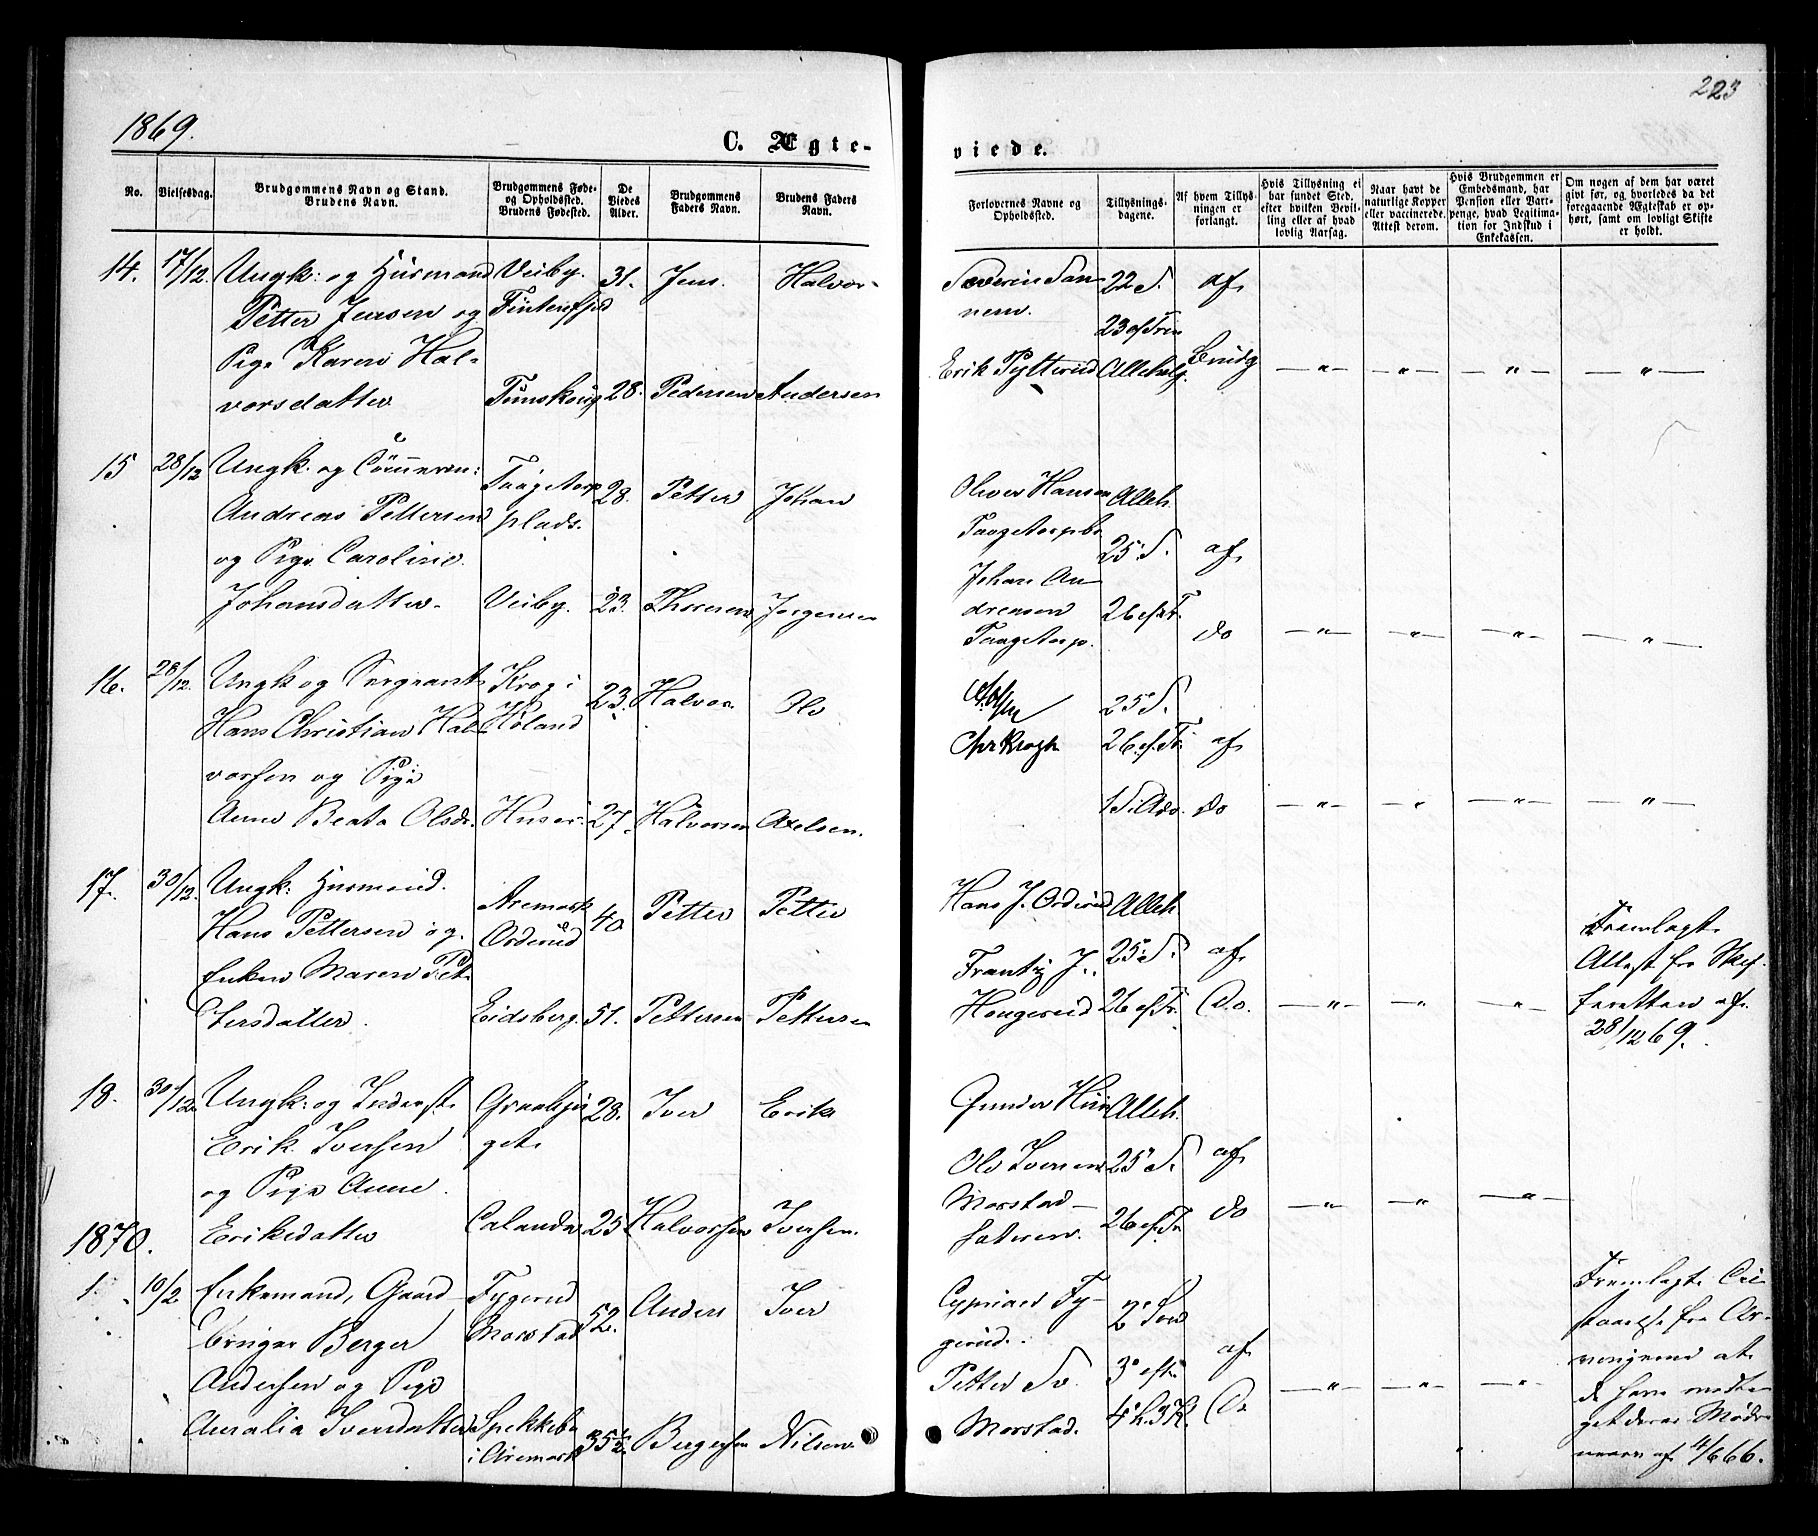 223
1869.
C. Ægte-
viede.
No.
Vielsesdag.
Brudgommens Navn og Stand.
Brudens Navn.
Brudgommens Føde-
og Opholdssted.
Brudens Fødested.
De
Viedes
Alder.
Brudgommens
Faders Navn.
Brudens Faders
Navn.
Forlovernes Navne og
Opholdssted.
Tillysnings-
dagene.
Af hvem Tillys-
ningen er
forlangt.
Hvis Tillysning ei
har fundet Sted,
efter hvilken Bevil-
ling eller af hvad
lovlig Aarsag.
Naar havt de
naturlige Kopper
eller vaccinerede.
Attest derom.
Hvis Brudgommen er
Embedsmand, har
Pension eller Vart-
penge, hvad Legitima-
tion for Indskud i
Enkekassen.
Om nogen af dem har været
gift før, og hvorledes da det
foregaaende Ægteskab er op-
hørt, samt om lovligt Skifte
er holdt.
14. 17/12. Ungk: og Husmand Veiby. 31. Jens. Halvor- Severin San 22 S. af
Petter Jensen og nem. 23 ef Trin
Pige Karen Hal- Erik Pytterud Alleh. Brudg — " — — " — — " — — " —
vorsdatter 28. Pedersen Andersen
15 28/12 Ungk. og Taagetorp 28. Petter Johan Oliver Hansen Alleh.
Andreas Pettersen plads. Taagetorp 25. S. af
og Pige Caroline Johan An
Johansdatter. Veiby. 23. Thoresen Jorgensen drensen 26 ef Tr.
Taagetorp. do — " — — " — — " — — " —
16. 28/12. Ungk og Sergeant Krog i 23. Halvor. Ole 25 S.
Hans Christian Hal- Høland Chr Krogh 26. ef. Tr. af
vorsen og Pige
Anne Beata Olsdr. Huser. 27. Halvorsen Axelsen. 1 S. i Adv. do — " — — " — — " — — " —
17. 30/12. Ungk: Husmand. Aremark 40 Petter Petter Hans J. Orderud Alleh.
Hans Pettersen og Orderud 25 S. af Fremlagt
Enken Maren Pet- Frantz J. Attest fra Skif-
tersdatter. Eidsberg. 51. Pettersen Pettersen Hougerud 26 ef Tr. Do. — " — — " — — " — teretten af
28/12 69.
18. 30/12. Ungk: og Inderst. 28. Iver Erik Gunder Alleh.
Erik Iversen get. Ole Iversen 25 S. af
og Pige Anne. Morstad-
Eriksdatter 25 Halvorsen Iversen. sæteren. 26 ef. Tr. do — " — — " — — " —
1870.
1. 10/2 Enkemand, Gaard- Tygerud 52. Anders Iver Cyprian Ty- Fremlagte
bruger Berger Morstad gerud. af
Andersen og Pige Petter 3 eft. at
Amalia Iversdatter Spekkebo 35 1/2. Bergersen Nilsen. Morstad. 4 h. 3 K. Do — " — — " — — " — de have modta
i Aremark get deres Mødre
af 4/6 66.